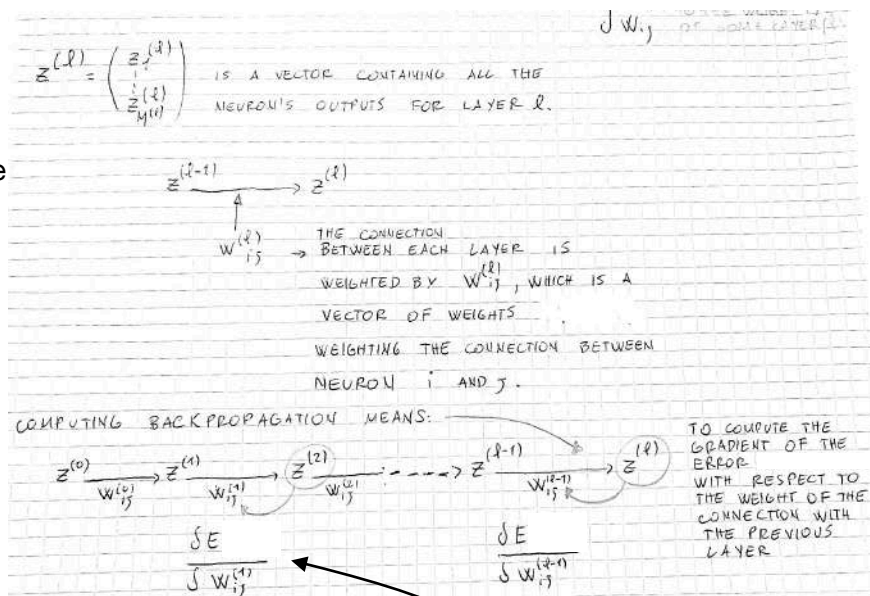 δ W_ij
z^(l) = ( z_i^(l) ⋮ z_M(l)^(l) ) IS A VECTOR CONTAINING ALL THE
NEURON'S OUTPUTS FOR LAYER l.
e
z^(l-1) → z^(l)
W_ij^(l) → THE CONNECTION
BETWEEN EACH LAYER IS
WEIGHTED BY W_ij^(l), WHICH IS A
VECTOR OF WEIGHTS
WEIGHTING THE CONNECTION BETWEEN
NEURON i AND j.
COMPUTING BACKPROPAGATION MEANS:
z^(0) → z^(1) → z^(2) → z^(l-1) → z^(l)
W_ij^(0) W_ij^(1) W_ij^(2) W_ij^(l-1)
δE
δ W_ij^(1)
δE
δ W_ij^(l-1)
TO COMPUTE THE
GRADIENT OF THE
ERROR
WITH RESPECT TO
THE WEIGHT OF THE
CONNECTION WITH
THE PREVIOUS
LAYER